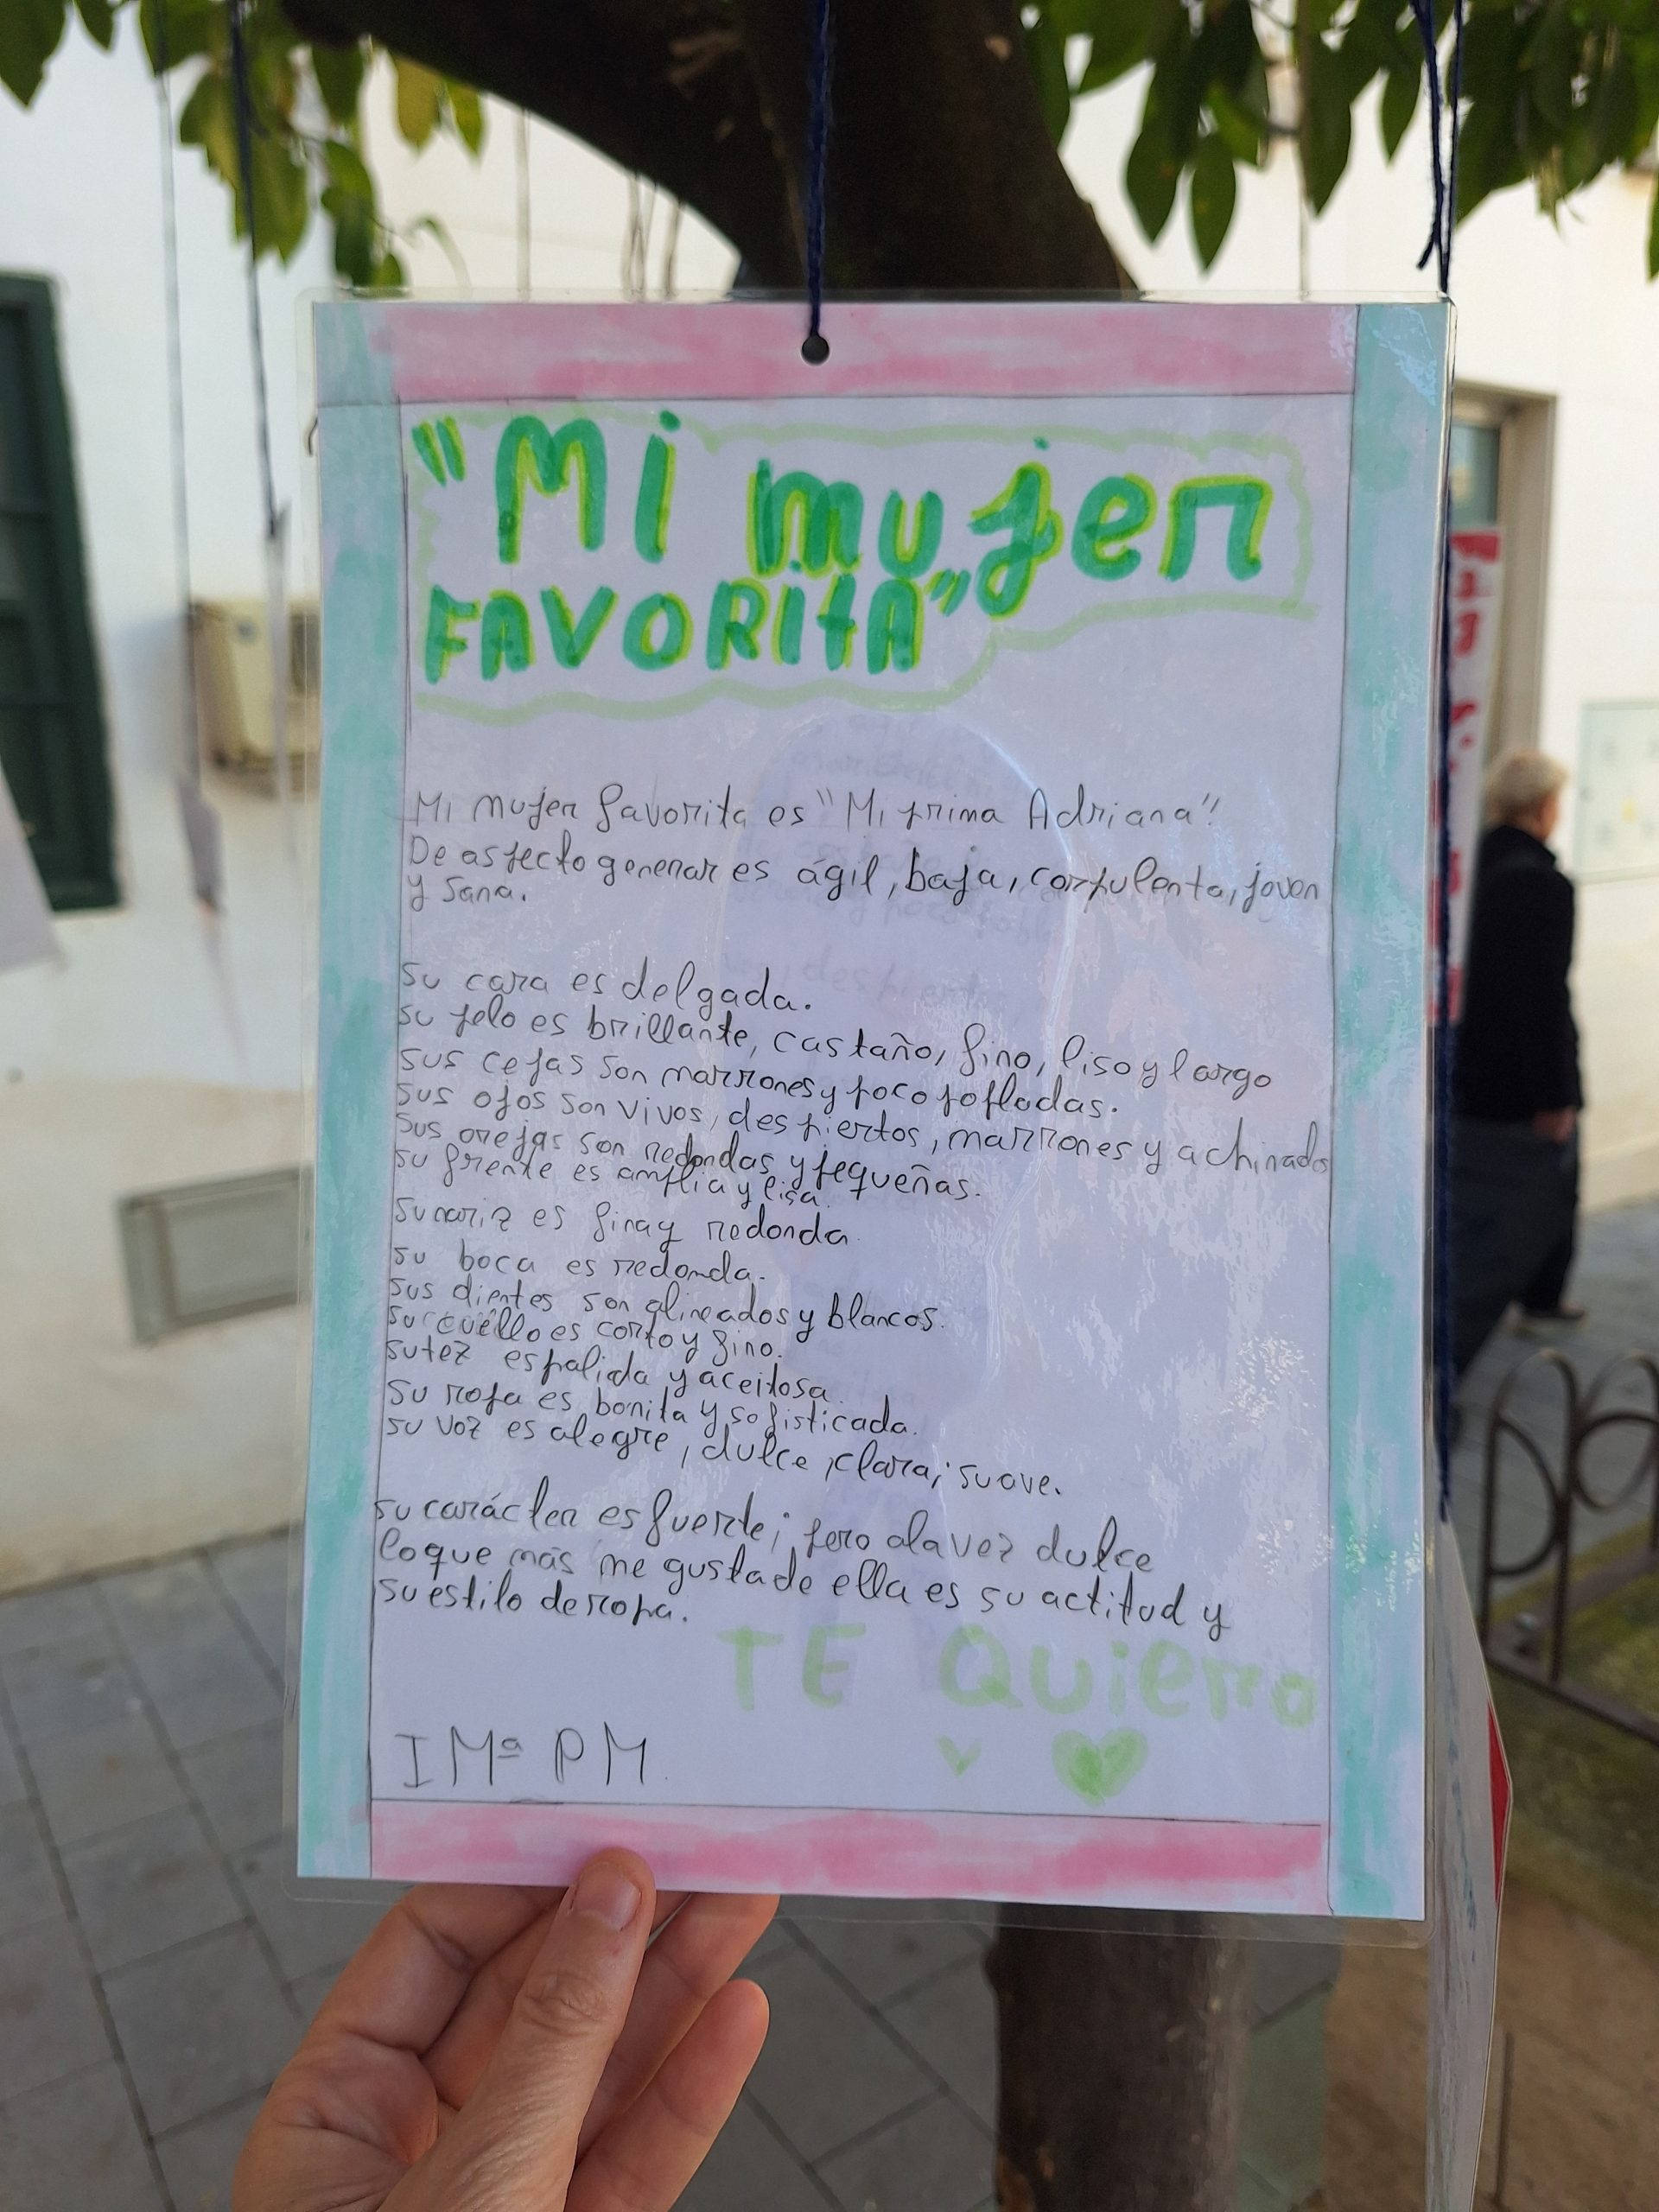 "Mi mujer
FAVORitA"
Mi mujer favorita es "Mi prima Adriana"!
De aspecto generar es ágil, baja, corpulenta, joven
y sana.
su cara es delgada.
su pelo es brillante, castaño, fino, liso y largo
sus cejas son marrones y poco pobladas.
sus ojos son vivos, despiertos, marrones y achinados
sus orejas son redondas y pequeñas.
su frente es amplia y lisa.
su nariz es fina y redonda
su boca es redonda.
sus dientes son alineados y blancos.
su cuello es corto y fino.
su tez es palida y aceitosa.
su ropa es bonita y sofisticada.
su voz es alegre, dulce, clara, suave.
su carácter es fuerte; pero a la vez dulce
lo que más me gusta de ella es su actitud y
su estilo de ropa.
TE Quiero
I Mª PM